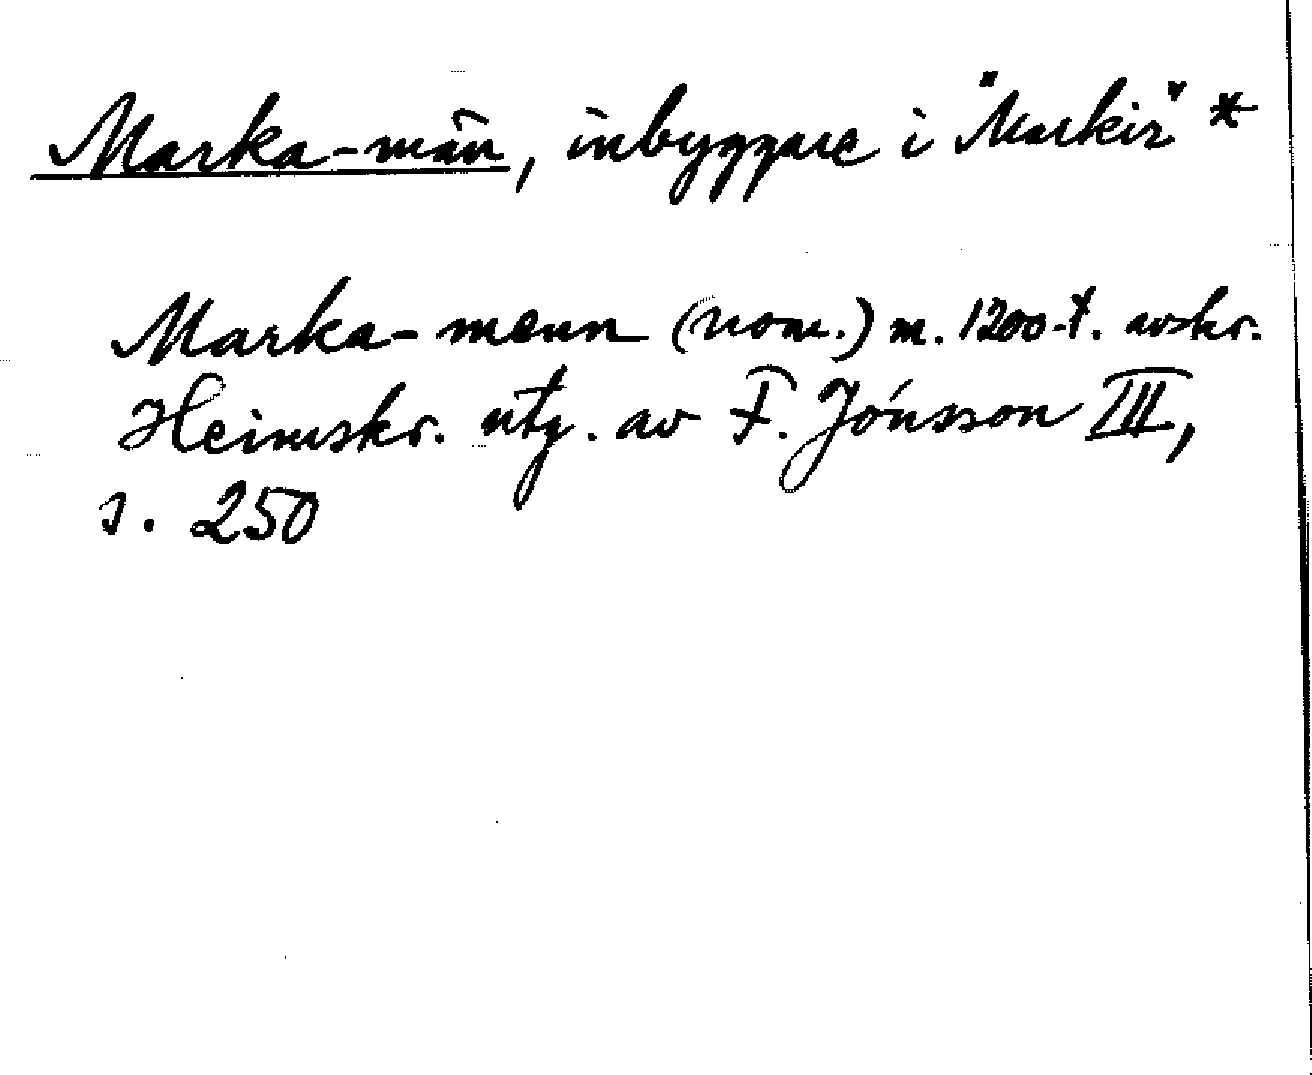 Marka-män, inbyggare i "Markir" *
Marka-menn (nom.) m. 1200-t. avskr.
Heimskr. utg. av F. Jónsson III,
s. 250